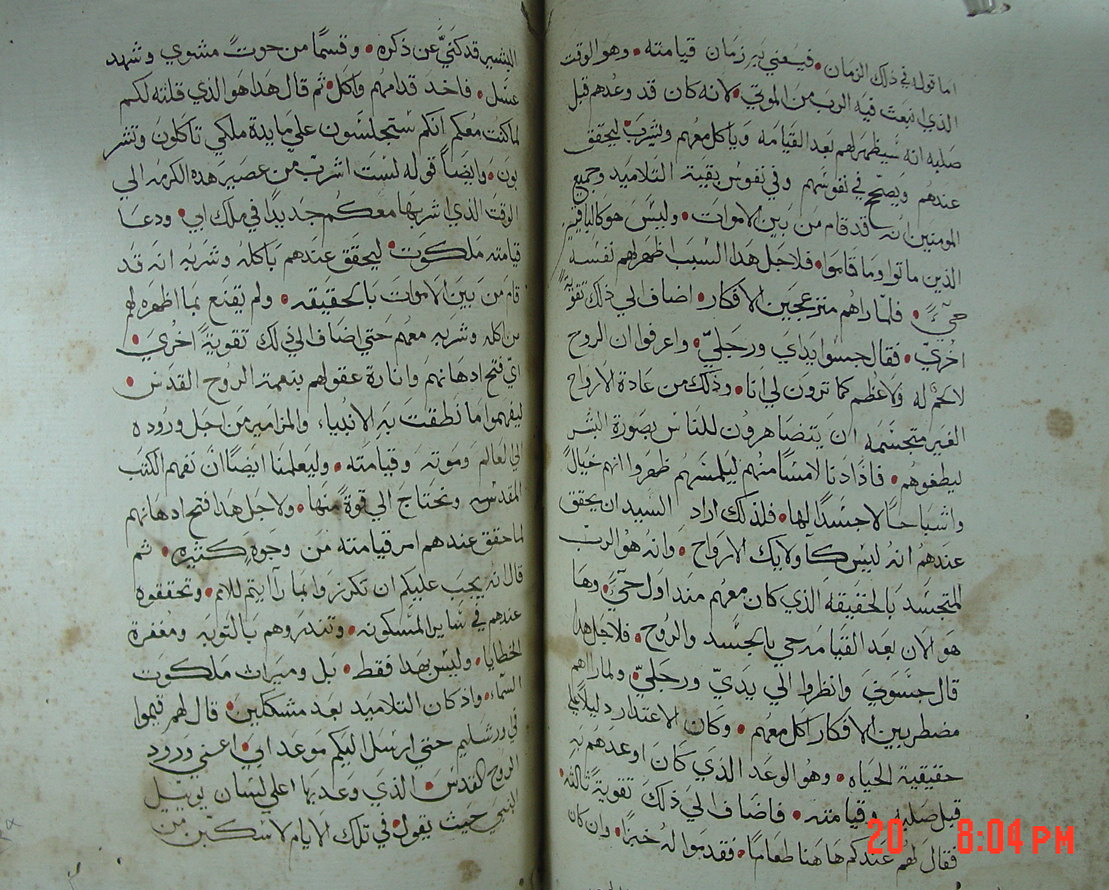 اما قوله في ذلك الزمان • فيعني به زمان قيامته • وهو الوقت
الذي انبعث فيه الرب من الموتي • لانه كان قد وعدهم قبل
صلبه انه سيظهر لهم بعد القيامه وياكل معهم ويشرب • ليحقق
عندهم ويصحح في نفوسهم وفي نفوس بقية التلاميد وجميع
المومنين انه قد قام من بين الاموات • وليس هو كالباقيين
الذين ماتوا وما قاموا • فلاجل هدا السبب ظهر لهم نفسه
حيً • فلما راهم منزعجين الافكار • اضاف الي ذلك تقوية
اخري • فقال جسوا يداي ورجليّ • واعرفوا ان الروح
لا لحم له ولا عظم كما ترون لي انا • وذلك من عادة الارواح
الغير متجسمه ان يتضاهرون للناس بصورة البشر
ليطغوهم • فاذا دنا لامسًا منهم ليلمسهم ظهروا انهم خيالً
واشباحًا لا جسدًا لها • فلذلك اراد السيد ان يحقق
عندهم انه ليس كاولايك الارواح • وانه هو الرب
المتجسد بالحقيقه الذي كان معهم مند اول حيّ • وها
هو الان بعد القيامه حي بالجسد والروح • فلاجل هدا
قال جسوني وانظروا الي يديّ ورجليّ • ولما راهم
مضطربين الافكار اكل معهم • وكان الاعتدار دليلاً علي
حقيقية الحياه • وهو الوعد الذي كان اوعدهم به
قبل صلبه وقيامته • فاضاف الي ذلك تقويةً تالته •
فقال لهم عندكم ها هنا طعامًا • فقدموا له خبزًا • وان كان
البشير قد كنيّ عن ذكره • وقسمًا من حوتً مشوي وشهد
عسل • فاخد قدامهم واكل • ثم قال هدا هو الذي قلته لكم
لما كنت معكم انكم ستجلسون علي مايدة ملكي تاكلون وتشر
بون • وايضاً قوله لست اشرب من عصير هده الكرمه الي
الوقت الذي اشربها معكم جديدًا في ملك ابي • ودعا
قيامته ملكوت • ليحقق عندهم باكله وشربه انه قد
قام من بين الاموات بالحقيقه • ولم يقنع بما اظهره لهم
من اكله وشربه معهم حتي اضاف لي ذلك تقويةً اخري •
اي فتح ادهانهم وانارة عقولهم بنعمة الروح القدس •
ليفهموا ما نطقت به الانبياء والمزامير من اجل وروده
الي لعالم وموته وقيامته • وليعلمنا ايضًا ان تفهم الكتب
المقدسه ونحتاج الي قوةً منها • ولاجل هدا فتح ادهانهم
لما حقق عندهم امر قيامته من وجوه كتيره • ثم
قال انه يجب عليكم ان تكرزوا بما راايتم للامم • وتحققوه
عندهم في ساير المسكونه • وتندروهم بالتوبه ومغفرة
الخطايا • وليس بهدا فقط • بل وميرات ملكوت
السماء • واد كان التلاميد بعد متشككين • قال لهم قيموا
في ورشليم حتي ارسل اليكم موعد ابي • اعني ورود
الروح القدس • الذي وعد بها علي لسان يوييل
النبي حيث يقول • في تلك الايام لاسكبن من
20 8:04 PM